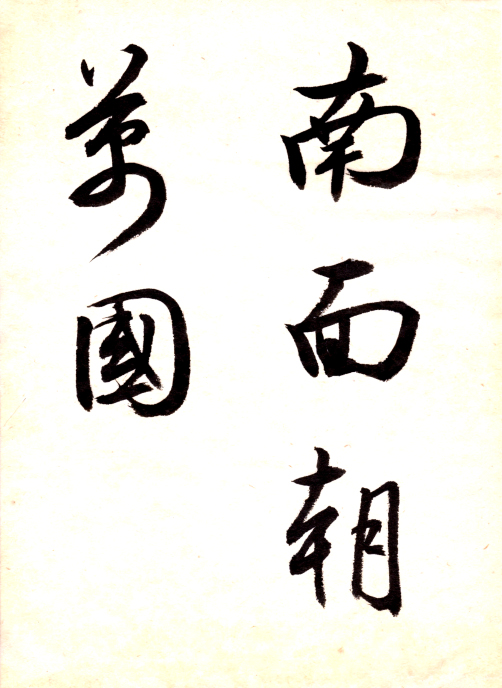 南面朝
萬國